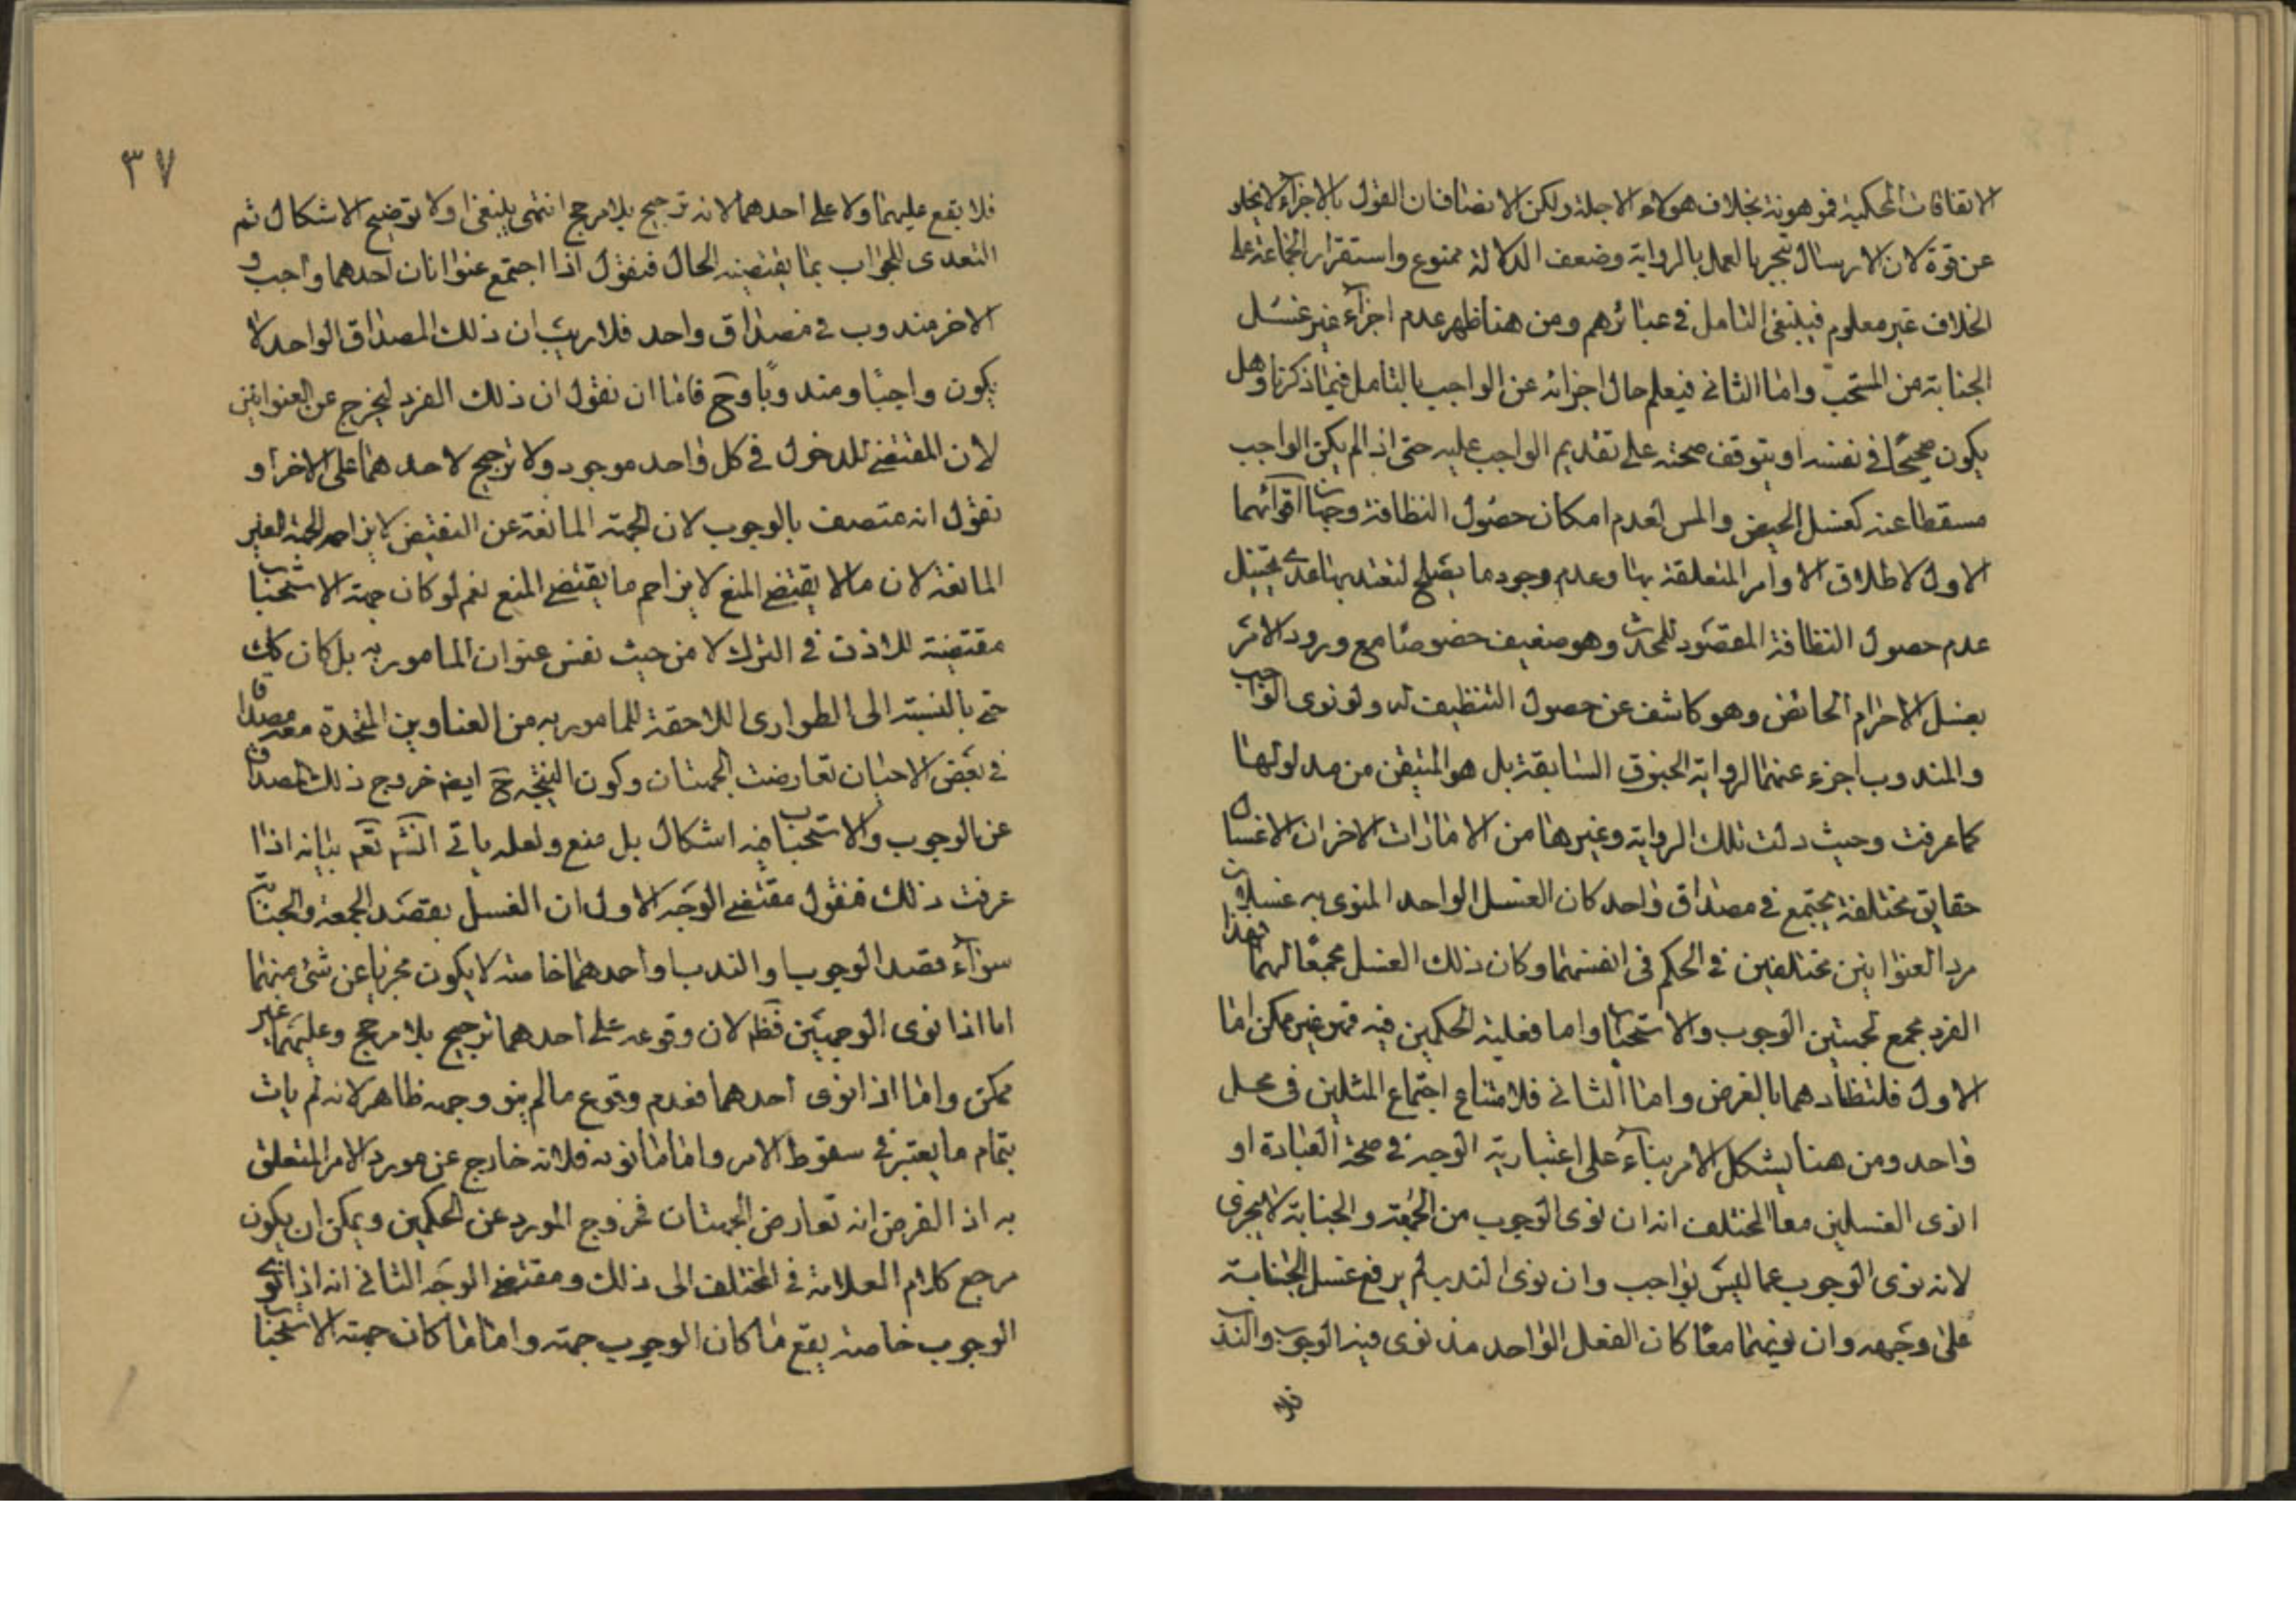 الاتفاقات المحكية فموهونة بخلاف هولاء الاجلة ولكن الانصاف ان القول بالاجزاء لا يخلو
عن قوة لان الارسال ينجبر بالعمل بالرواية وضعف الدلالة ممنوع واستقرار الجماعة على
الخلاف غير معلوم فينبغى التامل فى عبائرهم ومن هنا ظهر عدم اجزاء غير غسل
الجنابة من المستحب واما الثانى فيعلم حال اجزائه عن الواجب بالتامل فيما ذكرنا وهل
يكون صحيحا فى نفسه او يتوقف صحته على تقديم الواجب عليه حتى اذا لم يكن الواجب
مسقطا عنه كغسل الحيض والمس لعدم امكان حصول النظافة وجهان اقوائهما
الاول لاطلاق الاوامر المتعلقة بها وعدم وجود ما يصلح لتقييدها عدى تخيل
عدم حصول النظافة المقصود للمحدث وهو ضعيف خصوصا مع ورود الامر
بغسل الاحرام الحائض وهو كاشف عن حصول التنظيف له ولو نوى الواجب
والمندوب اجزء عنهما لرواية الحقوق السابقة بل هو المتيقن من مدلولها
كما عرفت وحيث دلت تلك الرواية وغيرها من الامارات الاخر ان الاغسال
حقايق مختلفة يجتمع فى مصداق واحد كان الغسل الواحد المنوى به غسلان
مرد العنوانين مختلفين فى الحكم فى انفسهما وكان ذلك الغسل مجمعا لهما فهذا
الفرد مجمع لجهتين الوجوب والاستحباب واما فعلية الحكمين فيه فهو غير ممكن اما
الاول فلتضادهما بالفرض واما الثانى فلامتناع اجتماع المثلين فى محل
واحد ومن هنا يشكل الامر بناء على اعتبارية الوجه فى صحة العبادة او
انوى الغسلين معا المختلف انه ان نوى الوجوب من الجمعة والجنابة لا يجزى
لانه نوى الوجوب عما ليس بواجب وان نوى الندب لم يرفع غسل الجنابة
على وجهه وان نويهما معا كان الفعل الواحد قد نوى فيه الوجوب والندب
فلا
٣٧
فلا يقع عليهما ولا على احدهما لانه ترجيح بلا مرجح انتهى ينبغى اولا توضيح الاشكال ثم
التعدى للجواب بما يقتضيه الحال فنقول اذا اجتمع عنوانان احدهما واجب و
الاخر مندوب فى مصداق واحد فلا ريب ان ذلك المصداق الواحد لا
يكون واجبا ومندوبا وح فاما ان نقول ان ذلك الفرد يخرج عن العنوانين
لان المقتضى للدخول فى كل واحد موجود ولا ترجيح لاحدهما على الاخر او
نقول انه متصف بالوجوب لان الجهة المانعة عن النقيض لا يزاحم الجهة الغير
المانعة لان مالا يقتضى المنع لا يزاحم ما يقتضى المنع نعم لو كان جهة الاستحباب
مقتضية للاذن فى الترك لا من حيث نفس عنوان المامور به بل كان كك
حتى بالنسبة الى الطوارى اللاحقة للمامور به من العناوين المتحدة معه مصداقا
فى بعض الاحيان تعارضت الجهتان وكون النتيجة ح ايضا خروج ذلك المصداق
عن الوجوب والاستحباب فيه اشكال بل منع ولعله ياتى انشم تعم بيانه اذا
عرفت ذلك فنقول مقتضى الوجه الاول ان الغسل بقصد الجمعة والجنابة
سواء قصد الوجوب والندب او احدهما خاصة لا يكون مجزيا عن شئ منهما
اما اذا نوى الوجهين فظم لان وقوعه على احدهما ترجيح بلا مرجح وعليهما غير
ممكن واما اذا نوى احدهما فعدم وقوع مالم ينو وجهه ظاهر لانه لم يات
بتمام ما يعتبر فى سقوط الامر واما ما نويه فلانه خارج عن مورد الامر المتعلق
به اذ الفرض انه تعارض الجهتان فخروج المورد عن الحكمين ويمكن ان يكون
مرجع كلام العلامة فى المختلف الى ذلك ومقتضى الوجه الثانى انه اذا نوى
الوجوب خاصة يقع ما كان الوجوب جهته واما ما كان جهته الاستحباب